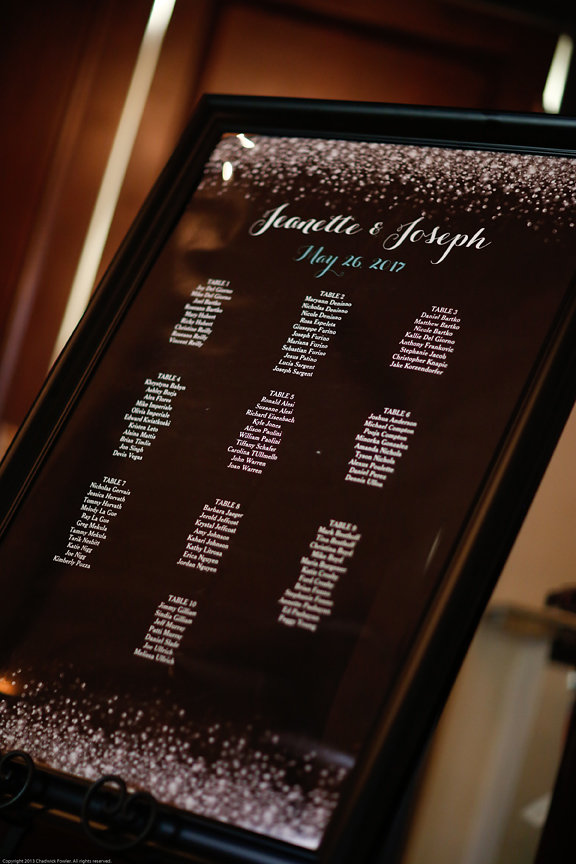 Jeanette & Joseph
May 26, 2017
TABLE 1
Joe Del Giorno
Mike Del Giorno
Bartko
Bartko
Mary Hubert
Ricky Hubert
Christine Reilly
Reilly
Vincent Reilly
TABLE 2
Maryann Deniano
Nicholas Deniano
Nicole Deniano
Rosa Espoleta
Giuseppe Furino
Joseph Furino
Mariana Furino
Sebastian Furino
Jesus Patino
Lucia Sargent
Joseph Sargent
TABLE 3
Daniel Bartko
Matthew Bartko
Nicole Bartko
Kallie Del Giorno
Anthony Frankovic
Stephanie Jacob
Christopher Knapic
Jake Korzendorfer
TABLE 4
Khrystyna Balyn
Ashley Borja
Alex Flores
Mike Imperiale
Olivia Imperiale
Edward Kwiatkoski
Kristen Leto
Alaina Mattis
Brian Timlin
Jon Singh
Devin Vegas
TABLE 5
Ronald Alesi
Suzanne Alesi
Richard Eisenbach
Kyle Jones
Alison Paolini
William Paolini
Tiffany Schafer
Carolina TUllmelle
John Warren
Joan Warren
TABLE 6
Joshua Anderson
Michael Compton
Pooja Compton
Minorka Gomez
Amanda Nichols
Tyron Nichols
Alexus Pouletto
Daniel Perez
Dennis Ullon
TABLE 7
Nicholas Gervais
Jessica Horvath
Tommy Horvath
Melody La Gue
Ray La Gue
Greg Mekula
Tammy Mekula
Tarik Nesbith
Katie Nigg
Joe Nigg
Kimberly Piazza
TABLE 8
Barbara Jaeger
Jerold Jeffcoat
Krystal Jeffcoat
Amy Johnson
Kahari Johnson
Kathy Litrosa
Erica Nguyen
Jordan Nguyen
TABLE 9
Mark
Christina
Ed
Peggy Young
TABLE 10
Jimmy Gillian
Sindia Gillian
Jeff Murray
Patti Murray
Daniel Slade
Joe Ullrich
Melissa Ullrich
Copyright 2013 Chadwick Fowler. All rights reserved.